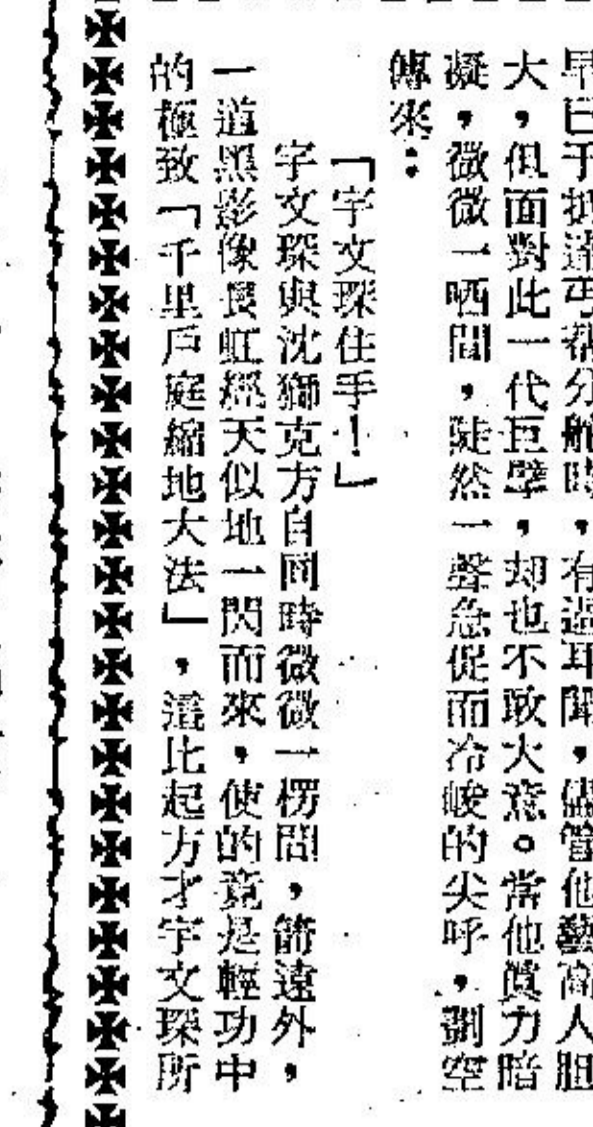 早已于抵達丐幫分舵時，有過耳聞，儘管他藝高人胆
大，但面對此一代巨擘，却也不敢大意。當他眞力暗
凝，微微一哂間，陡然一聲急促而冷峻的尖呼，劃空
傳來：
「宇文琛住手！」
宇文琛與沈獅克方自同時微微一楞間，箭遠外，
一道黑影像長虹經天似地一閃而來，使的竟是輕功中
的極致「千里戶庭縮地大法」，這比起方才宇文琛所